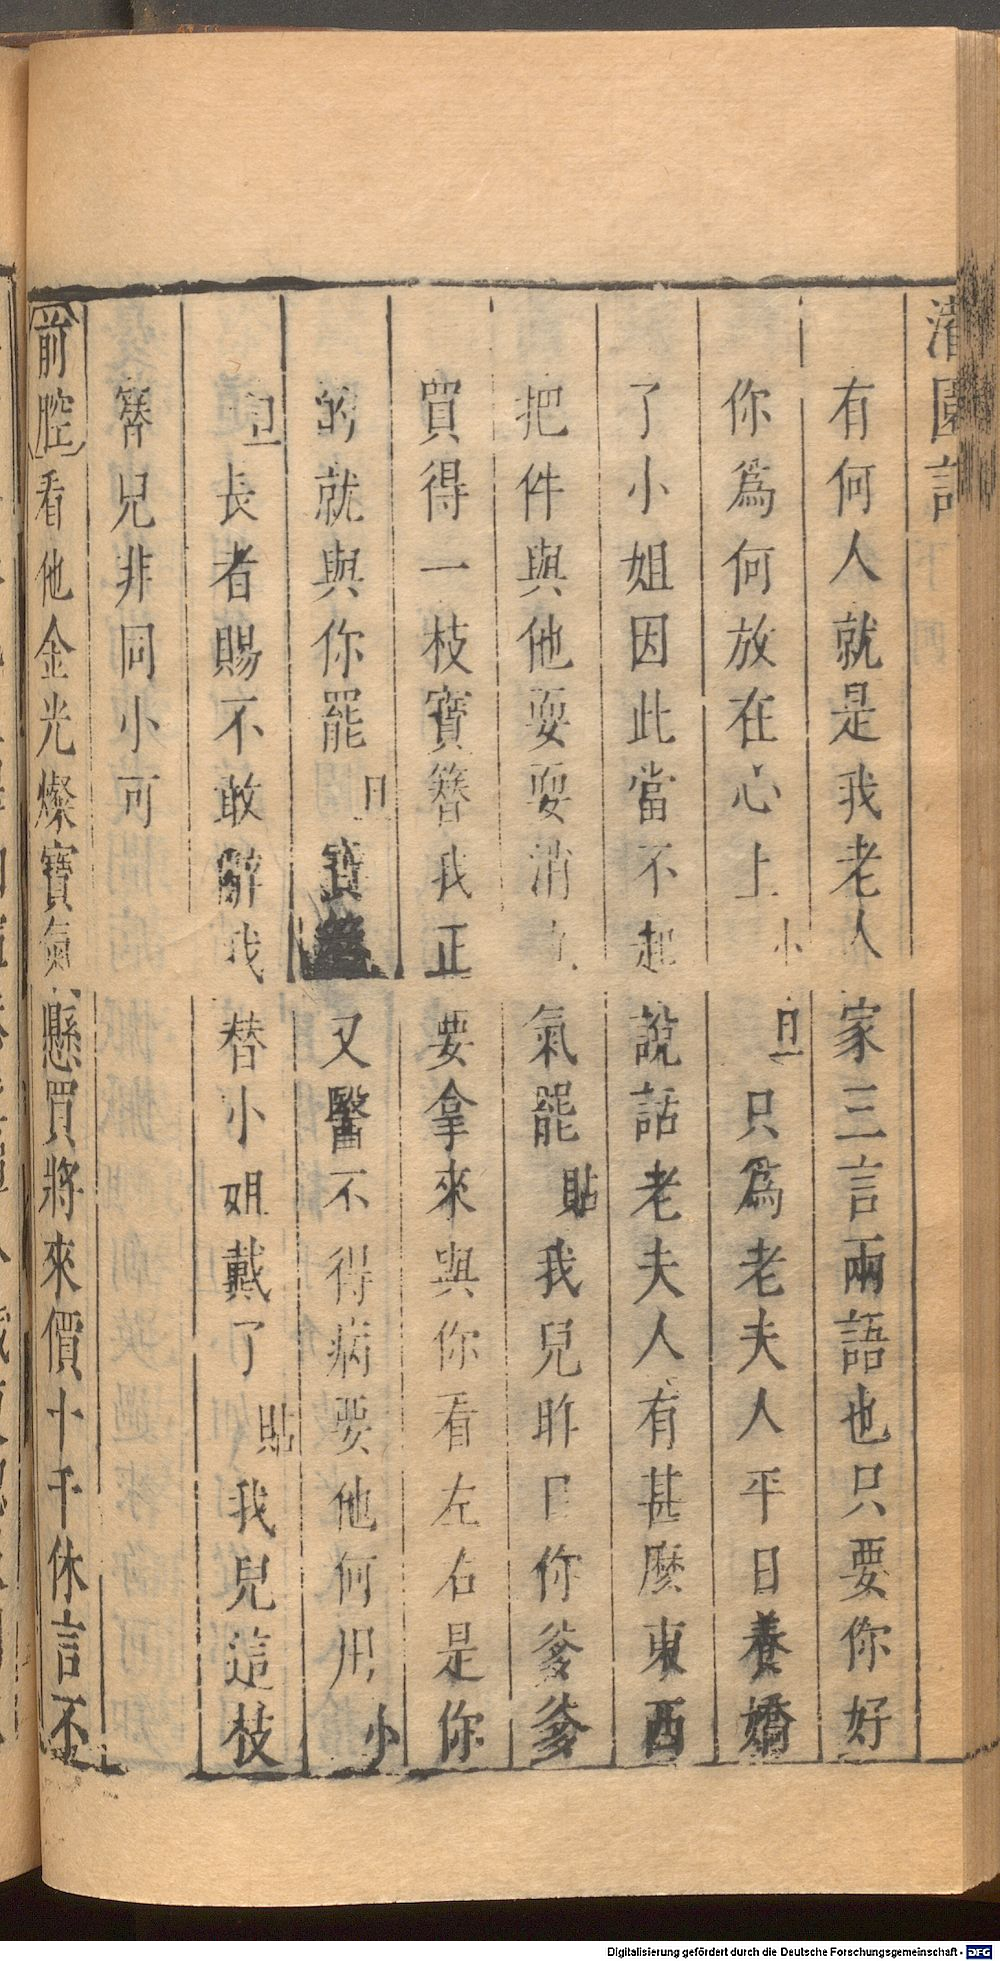 灌園記
有何人就是我老人家三言兩語也只要你好
你爲何放在心上小旦只爲老夫人平日養嬌
了小姐因此當不起說話老夫人有甚麼東西
把件與他耍耍消氣罷貼我兒昨日你爹爹
買得一枝寶簪我正要拿來與你看左右是你
的就與你罷旦寶簪又醫不得病要他何用小
旦長者賜不敢辭我替小姐戴了貼我兒這枝
簪兒非同小可
前腔看他金光燦寶氣懸買將來價十千休言丕
Digitalisierung gefördert durch die Deutsche Forschungsgemeinschaft - DFG